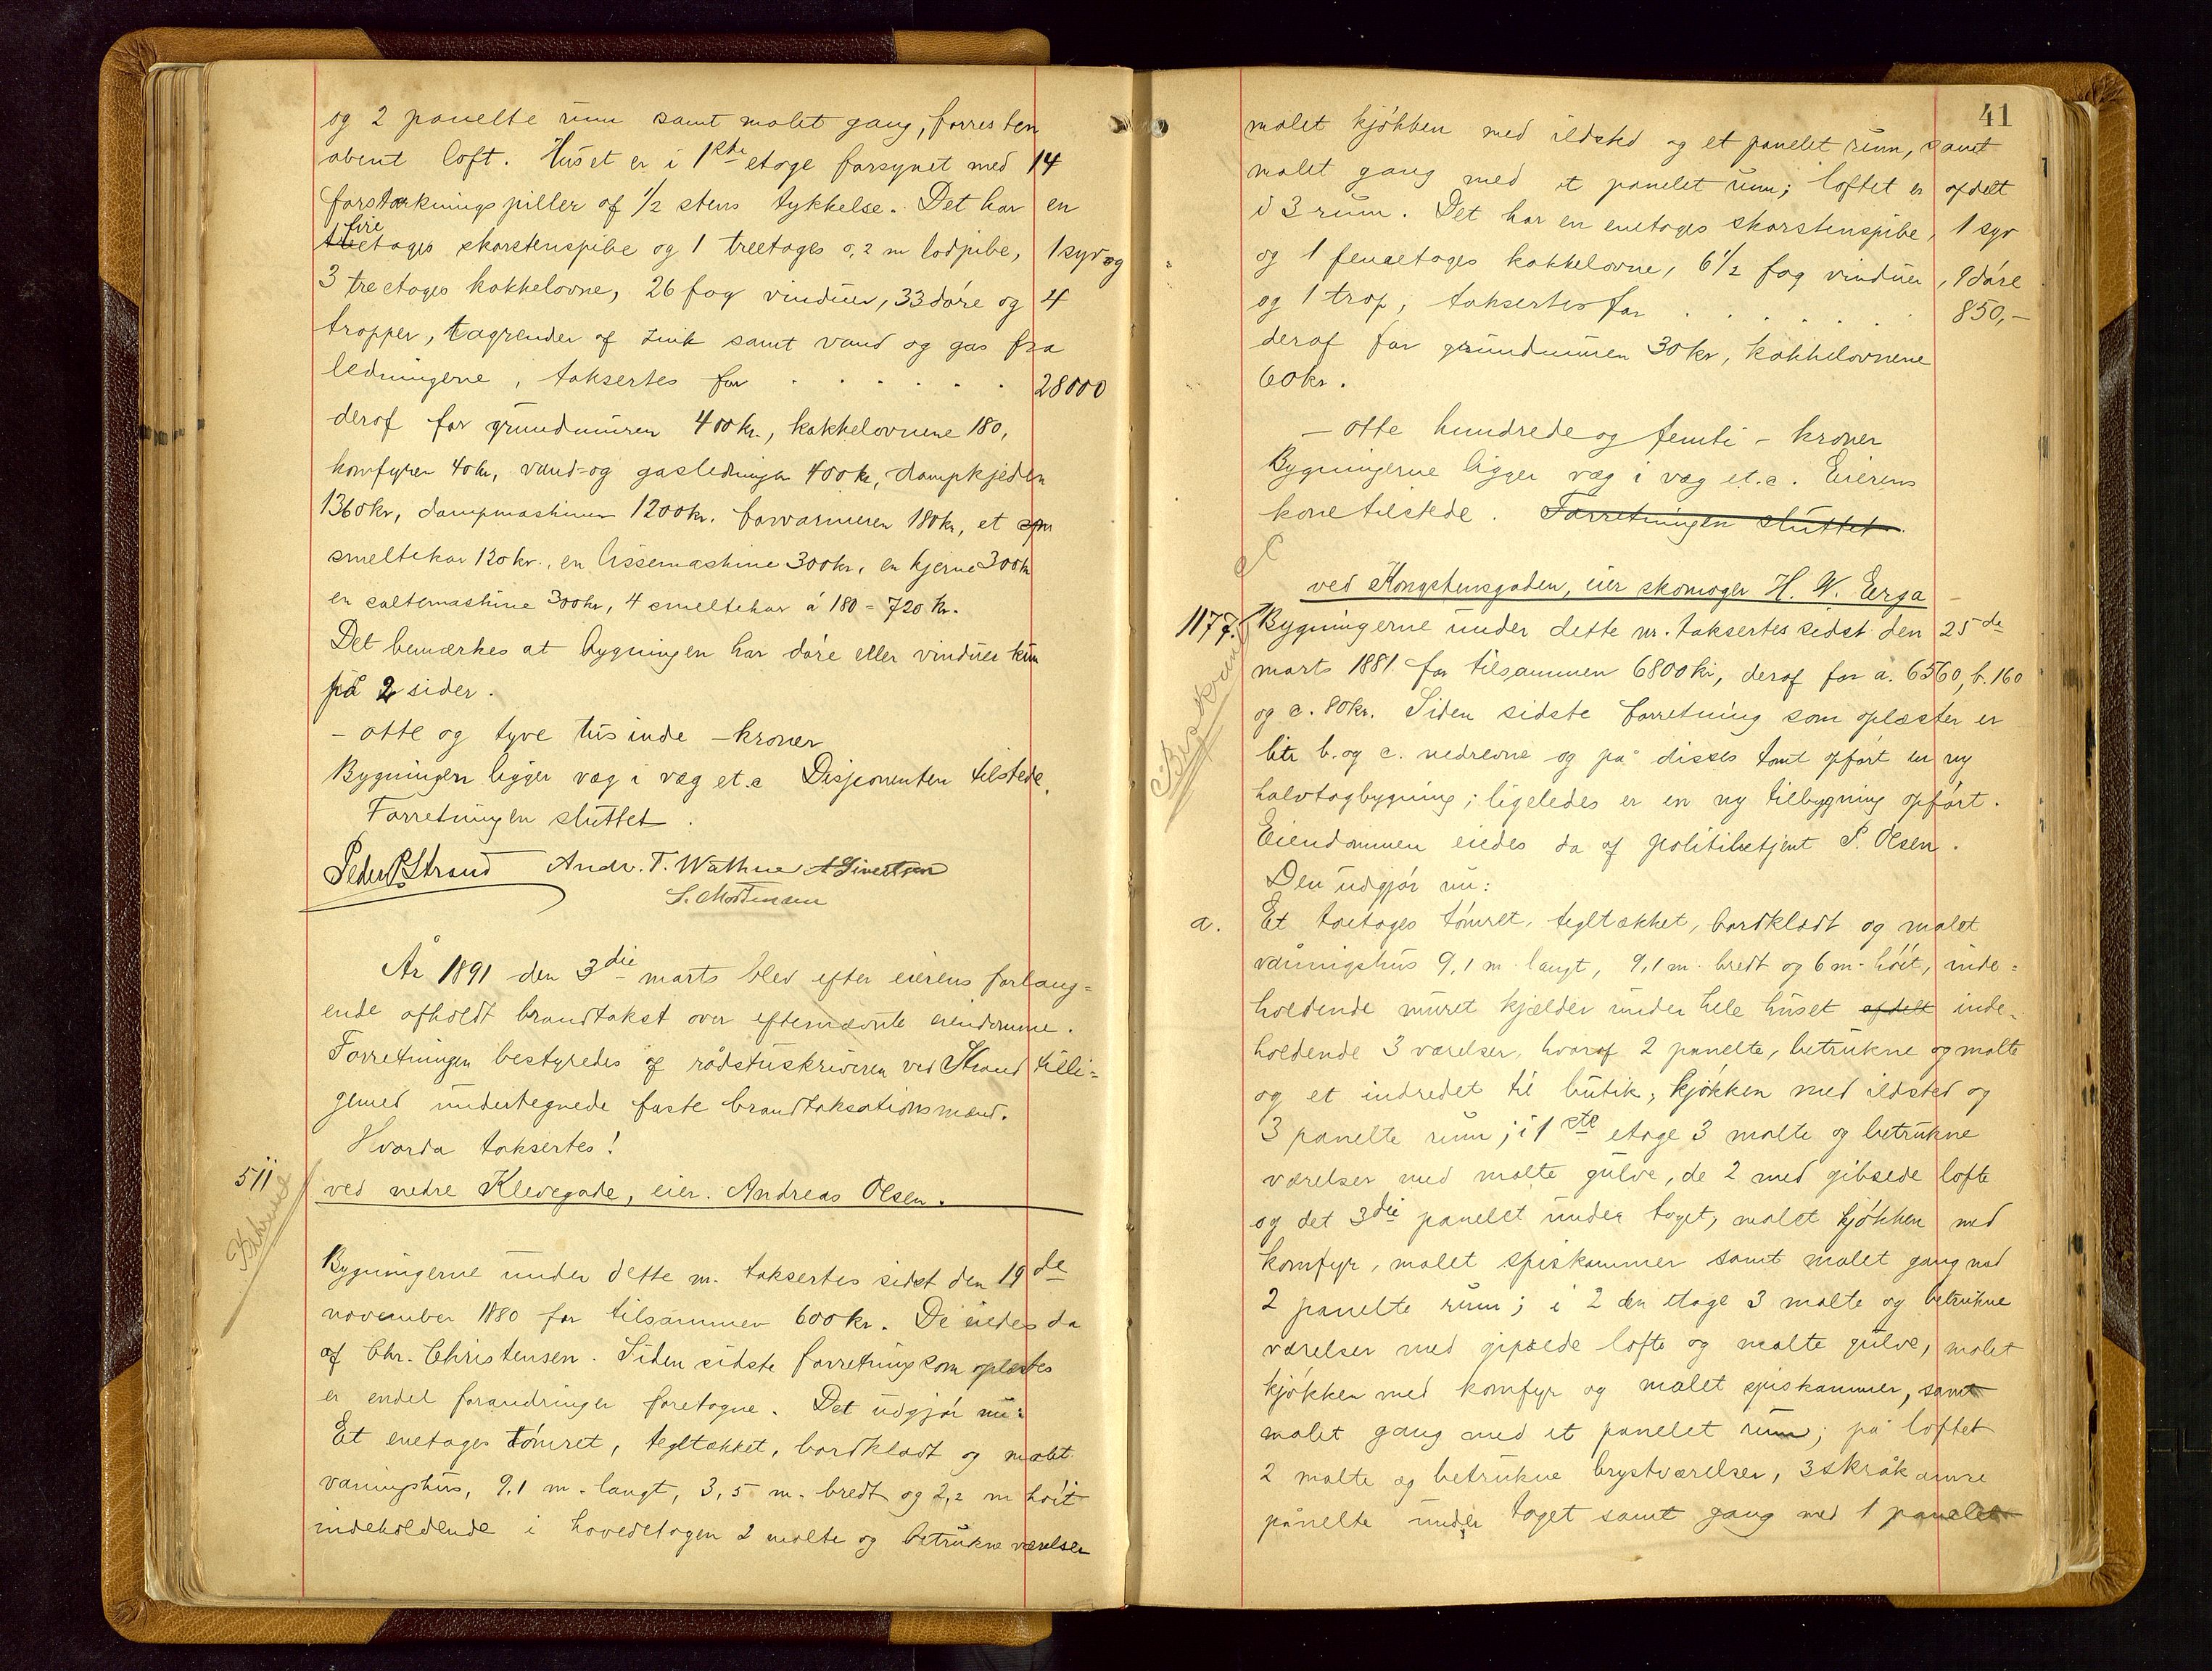 og 2 panelte rum samt malet gang, forresten
åbent loft. Huset er i 1ste etage forsynet med 14
forstærkningspiller af 1/2 stens tykkelse. Det har en
fire
treetages skorstenspibe og 1 treetages 0,2 m lodpibe, 1 syv og
3 treetages kakkelovne, 26 fag vinduer, 33 døre og 4
tropper, tagrender af zink samt vand og gas fra
ledningerne, taksertes for . . . . . . 28000
deraf for grundmuren 400 kr, kakkelovnene 180,
komfyren 40 kr, vand- og gasledningen 400 kr, dampkjedlen
1360 kr, dampmaskinen 1200 kr. forvarmeren 180 kr, et
smeltekar 120 kr., en lissemaskine 300 kr, en kjerne 300 kr
en saltemaskine 300 kr, 4 smeltekar á 180 = 720 kr.
Det bemærkes at bygningen har døre eller vinduer kun
på 2 sider.
- otte og tyve tusinde - kroner
Bygningen ligger væg i væg et.c Disponenten tilstede.
Forretningen sluttet.
Peder P Strand Andr. T. Wathne A Sivertsen
S. Mortensen
År 1891 den 3die marts blev efter eierens forlang=
ende afholdt brandtakst over efternævnte eiendomme.
Forretningen bestyredes af rådstuskriveren ved Strand tilli=
gemed undertegnede faste brandtaksationsmænd.
Hvorda taksertes!
511
ved nedre Klevegade, eier. Andreas Olsen.
Bygningerne under dette nr. taksertes sidst den 19de
november 1880 for tilsammen 600 kr. De eiedes da
af Chr. Christensen. Siden sidste forretning som oplæstes
er endel forandringer foretagne. Det udgjør nu:
Et enetages tømret, tegltækket, bordklædt og malet
våningshus, 9,1 m. langt, 3,5 m. bredt og 2,2 m høit
indeholdende i hovedetagen 2 malte og betrukne værelser
41
malet kjøkken med ildsted og et panelet rum, samt
malet gang med et panelet rum; loftet er afdelt
i 3 rum. Det har en enetages skorstenspibe, 1 syv
og 1 femetages kakkelovne, 6 1/2 fag vinduer, 9 døre
og 1 trap, taksertes for . . . . . . 850,-
deraf for grundmuren 30 kr, kakkelovnene
60 kr.
- otte hundrede og femti - kroner
Bygningerne ligger væg i væg et.c. Eierens
kone tilstede. Forretningen sluttet.
ved Kongstensgaden, eier skomager H. W. Erga
1177. Bygningerne under dette nr. taksertes sidst den 25de
marts 1881 for tilsammen 6800 kr, deraf for a. 6560, b. 160
og c. 80 kr. Siden sidste forretning som oplæstes er
litr b. og c. nedrevne og på disses tomt opført en ny
halvtagbygning; ligeledes er en ny tilbygning opført.
Eiendommen eiedes da af politibetjent P. Olsen.
Den udgjør nu:
a. Et toetages tømret, tegltækket, bordklædt og malet
våningshus 9,1 m. langt, 9,1 m. bredt og 6 m. høit, inde=
holdende muret kjælder under hele huset afdelt inde=
holdende 3 værelser, hvoraf 2 panelte, betrukne og malte
og et indredet til butik, kjøkken med ildsted og
3 panelte rum; i 1ste etage 3 malte og betrukne
værelser med malte gulve, de 2 med gibsede lofte
og det 3die panelet under taget, malet kjøkken med
komfyr, malet spiskammer samt malet gang med
2 panelte rum; i 2den etage 3 malte og betrukne
værelser med gipsede lofte og malte gulve, malet
kjøkken med komfyr og malet spiskammer, samt
malet gang med et panelet rum; på loftet
2 malte og betrukne brystværelser, 3 skråkamre
panelte under taget samt gang med 1 panelet